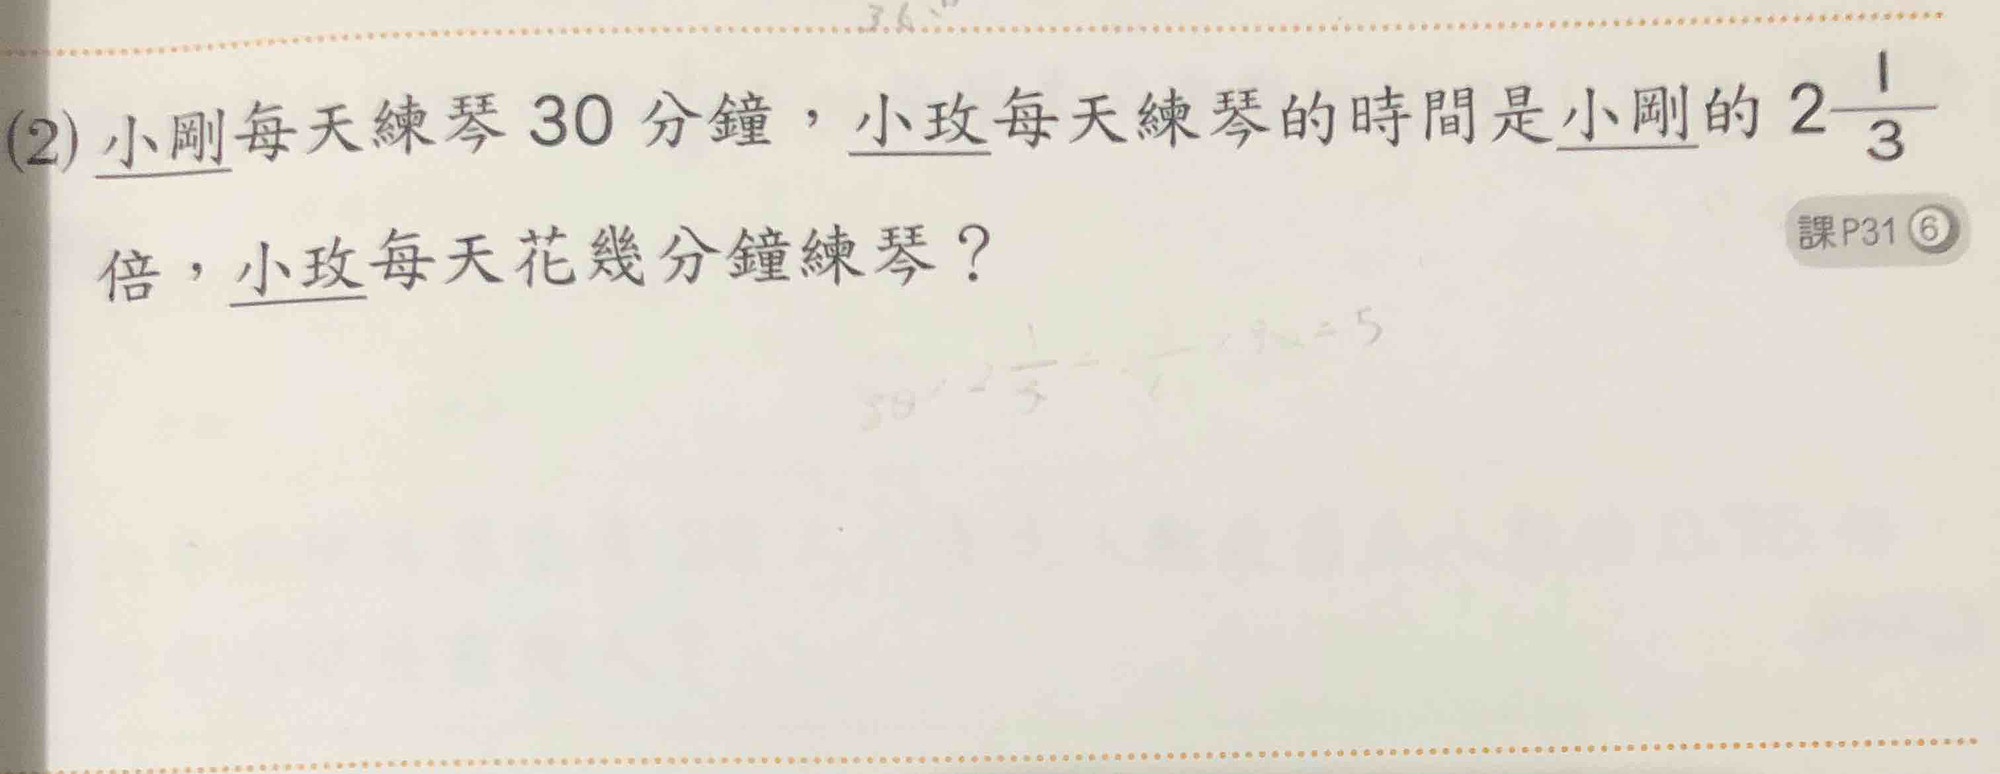 (2) 小剛每天練琴 30 分鐘，小玫每天練琴的時間是小剛的 2 1/3
倍，小玫每天花幾分鐘練琴？
課P31 ⑥